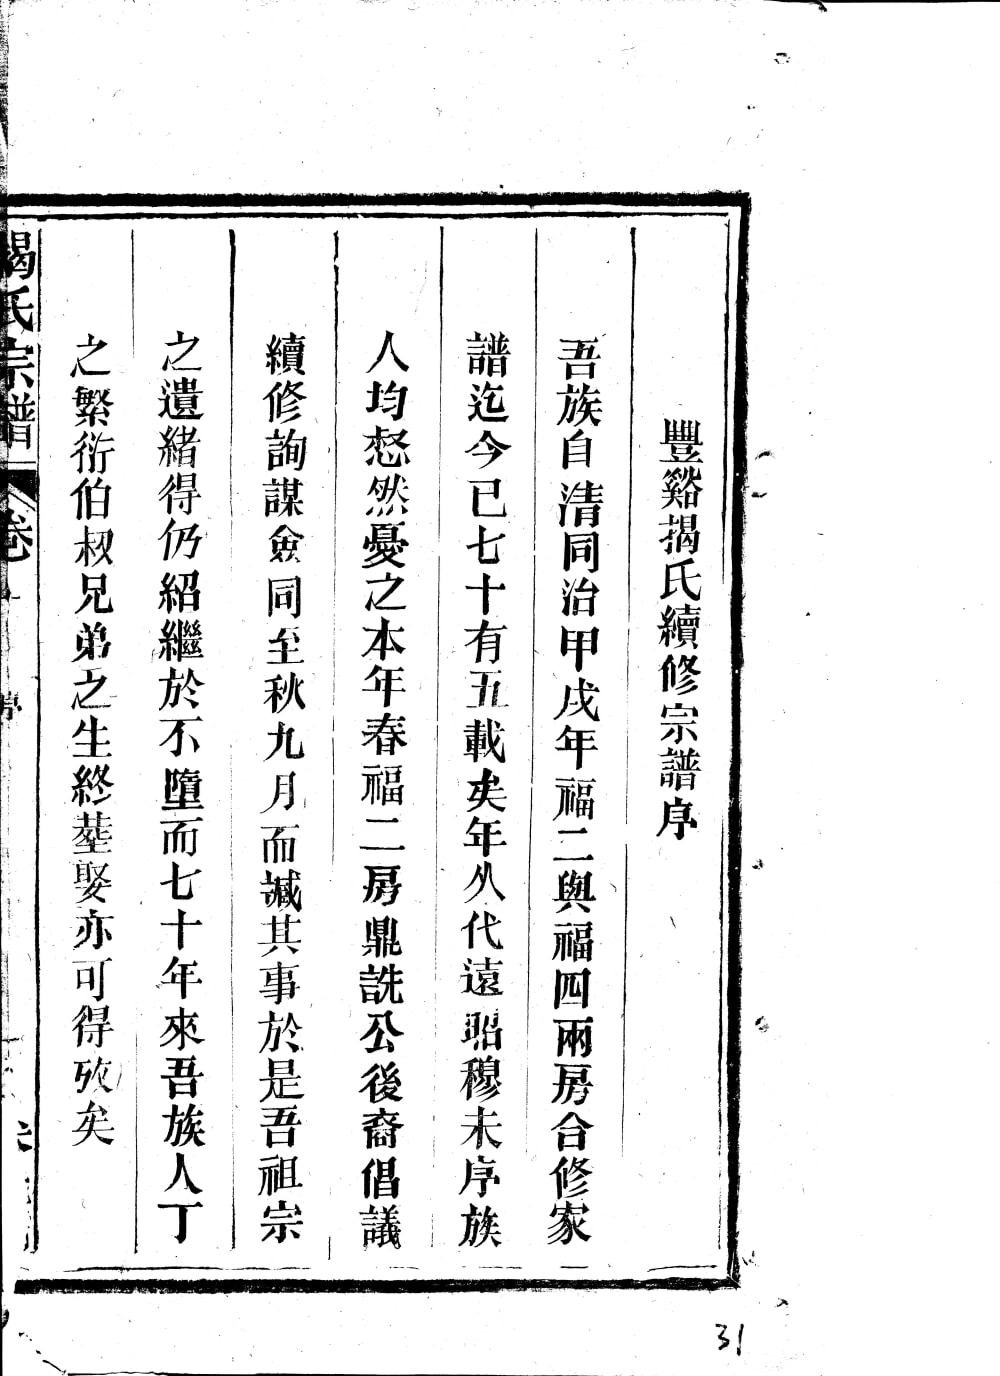 豐谿揭氏續修宗譜序
吾族自清同治甲戌年福二與福四兩房合修家
譜迄今已七十有五載矣年久代遠昭穆未序族
人均惄然憂之本年春福二房鼎詵公後裔倡議
續修詢謀僉同至秋九月而諴其事於是吾祖宗
之遺緒得仍紹繼於不墮而七十年來吾族人丁
之繁衍伯叔兄弟之生終塟娶亦可得攷矣
揭氏宗譜 卷 序
31